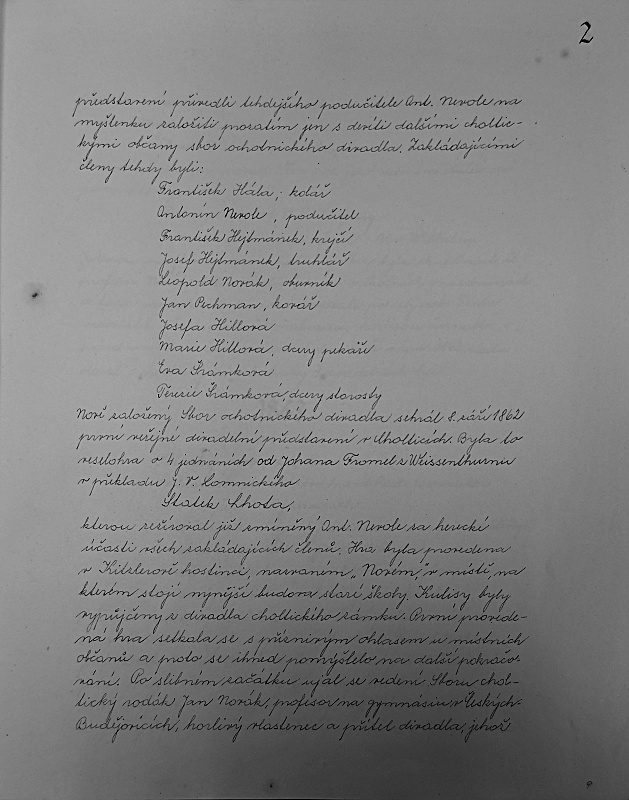 2
představení přivedli tehdejšího podučitele Ant. Nevole na
myšlenku založiti prozatím jen s devíti dalšími choltic-
kými občany sbor ochotnického divadla. Zakládajícími
členy tehdy byli:
František Hála, kolář
Antonín Nevole, podučitel
František Hejtmánek, krejčí
Josef Hejtmánek, truhlář
Leopold Novák, obuvník
Jan Pechman, kovář
Josefa Hillová
Marie Hillová, dcery pekaře
Eva Šrámková
Terezie Šrámková, dcery starosty
Nově založený Sbor ochotnického divadla sehrál 8. září 1862
první veřejné divadelní představení v Cholticích. Byla to
veselohra o 4 jednáních od Johana Fromel z Weissenthurnu
v překladu J. V. Lomnického
Statek Lhota,
kterou režíroval již zmíněný Ant. Nevole za herecké
účasti všech zakládajících členů. Hra byla provedena
v Kitzlerově hostinci, nazvaném „Novém", v místě, na
kterém stojí nynější budova staré školy. Kulisy byly
vypůjčeny z divadla choltického zámku. První provede-
ná hra setkala se s příznivým ohlasem u místních
občanů a proto se ihned pomýšlelo na další pokračo-
vání. Po slibném začátku ujal se vedení Sboru chol-
tický rodák Jan Novák, profesor na gymnásiu v Českých
Budějovicích, horlivý vlastenec a přítel divadla, jehož